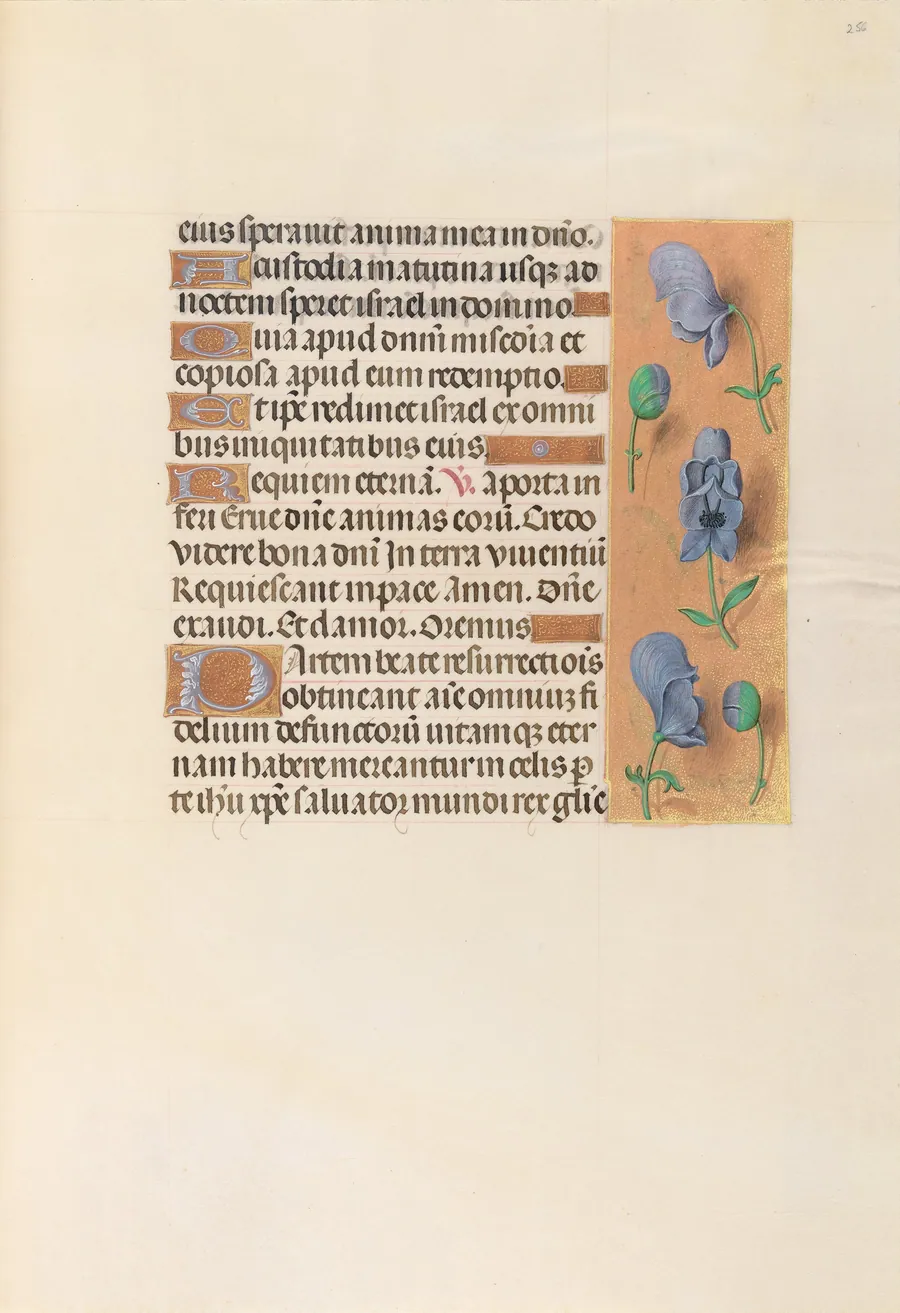 256
eius sperauit anima mea in dño.
A custodia matutina usqȝ ad
noctem speret israel in domino
Quia apud dnm̄ misc̄dia et
copiosa apud eum redemptio.
Et ip̄e redimet israel ex omni
bus iniquitatibus eius.
Requiem eternā. V. a porta in
feri Erue dn̄e animas eorū. Credo
videre bona dnī In terra viuentiū
Requiescant in pace Amen. Dn̄e
exaudi. Et clamor. Oremus
PArtem beate resurrectiōis
obtineant aīe omniuȝ fi
delium defunctorū uitamqȝ eter
nam habere mereantur in celis ꝑ
te ih̄u xp̄e saluator mundi rex glīe